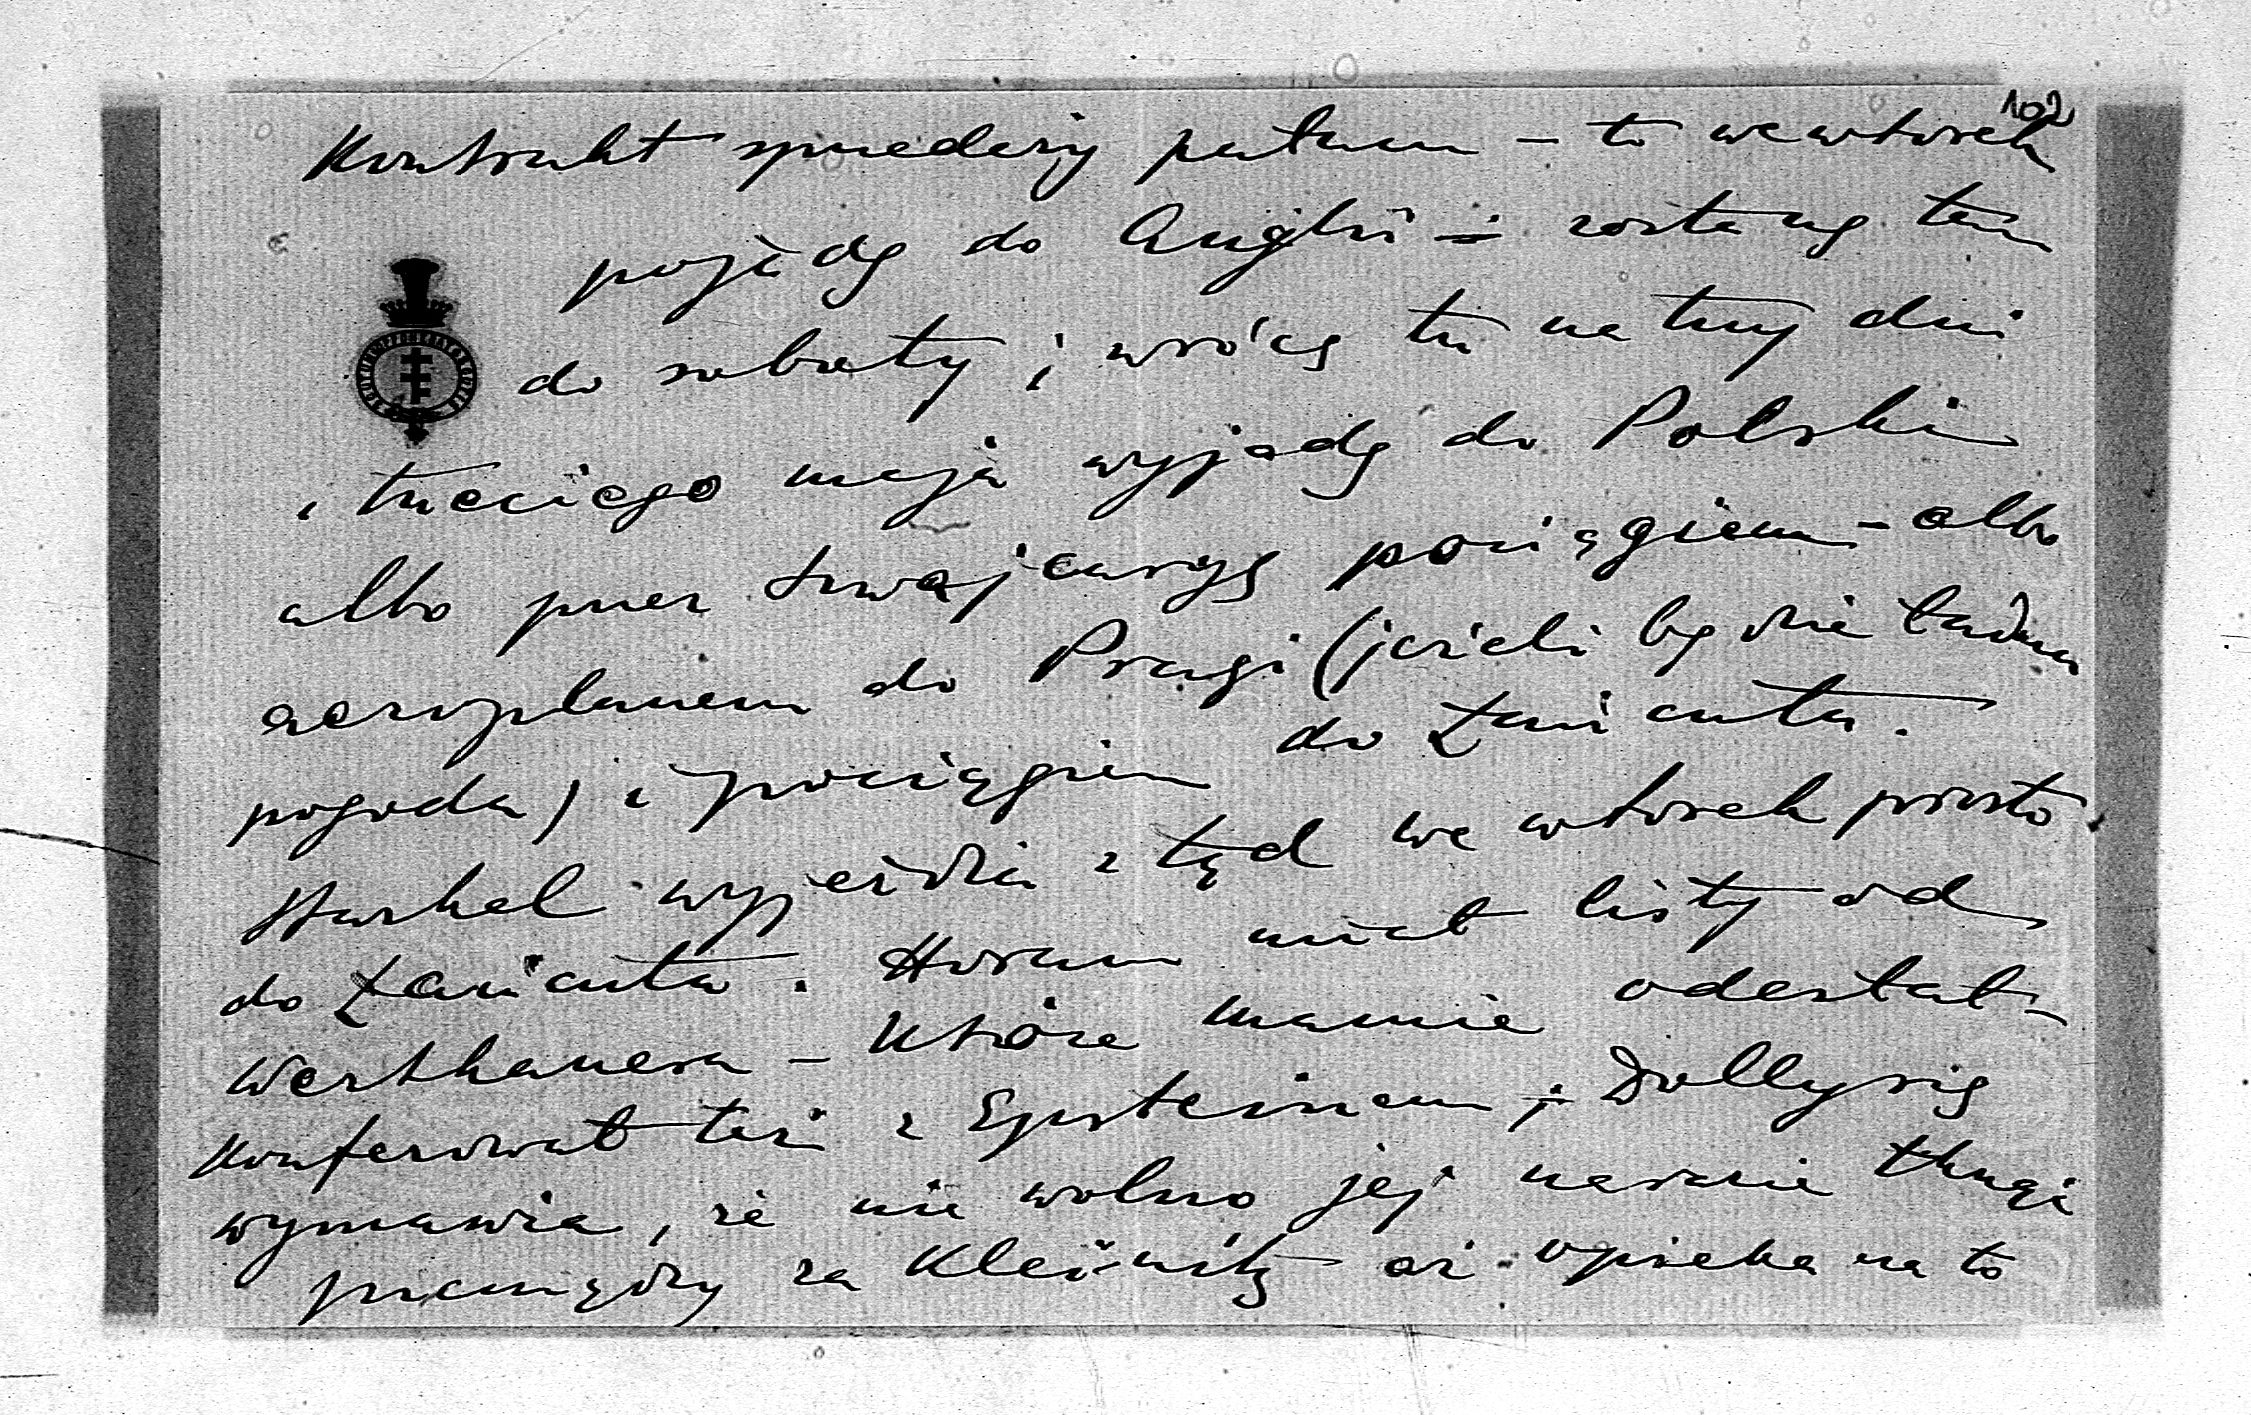 102
Kontrakt sprzedaży patam – to we wtorek
pojadę do Anglii i zostanę tam
do soboty i wrócę tu na trzy dni
i trzeciego maja wyjadę do Polski
albo przez Szwajcaryę pociągiem – albo
aeroplanem do Pragi (jeżeli będzie ładna
pogoda) i pociągiem do Łańcuta.
wyjeżdża z tąd we wtorek prosto
do Łańcuta. miał listy od
Werthauera – które mamie odesłał i
konferował też z Epsteinem i Dolly się
wymawia, że nie wolno jej
pieniędzy za aż opieka na to